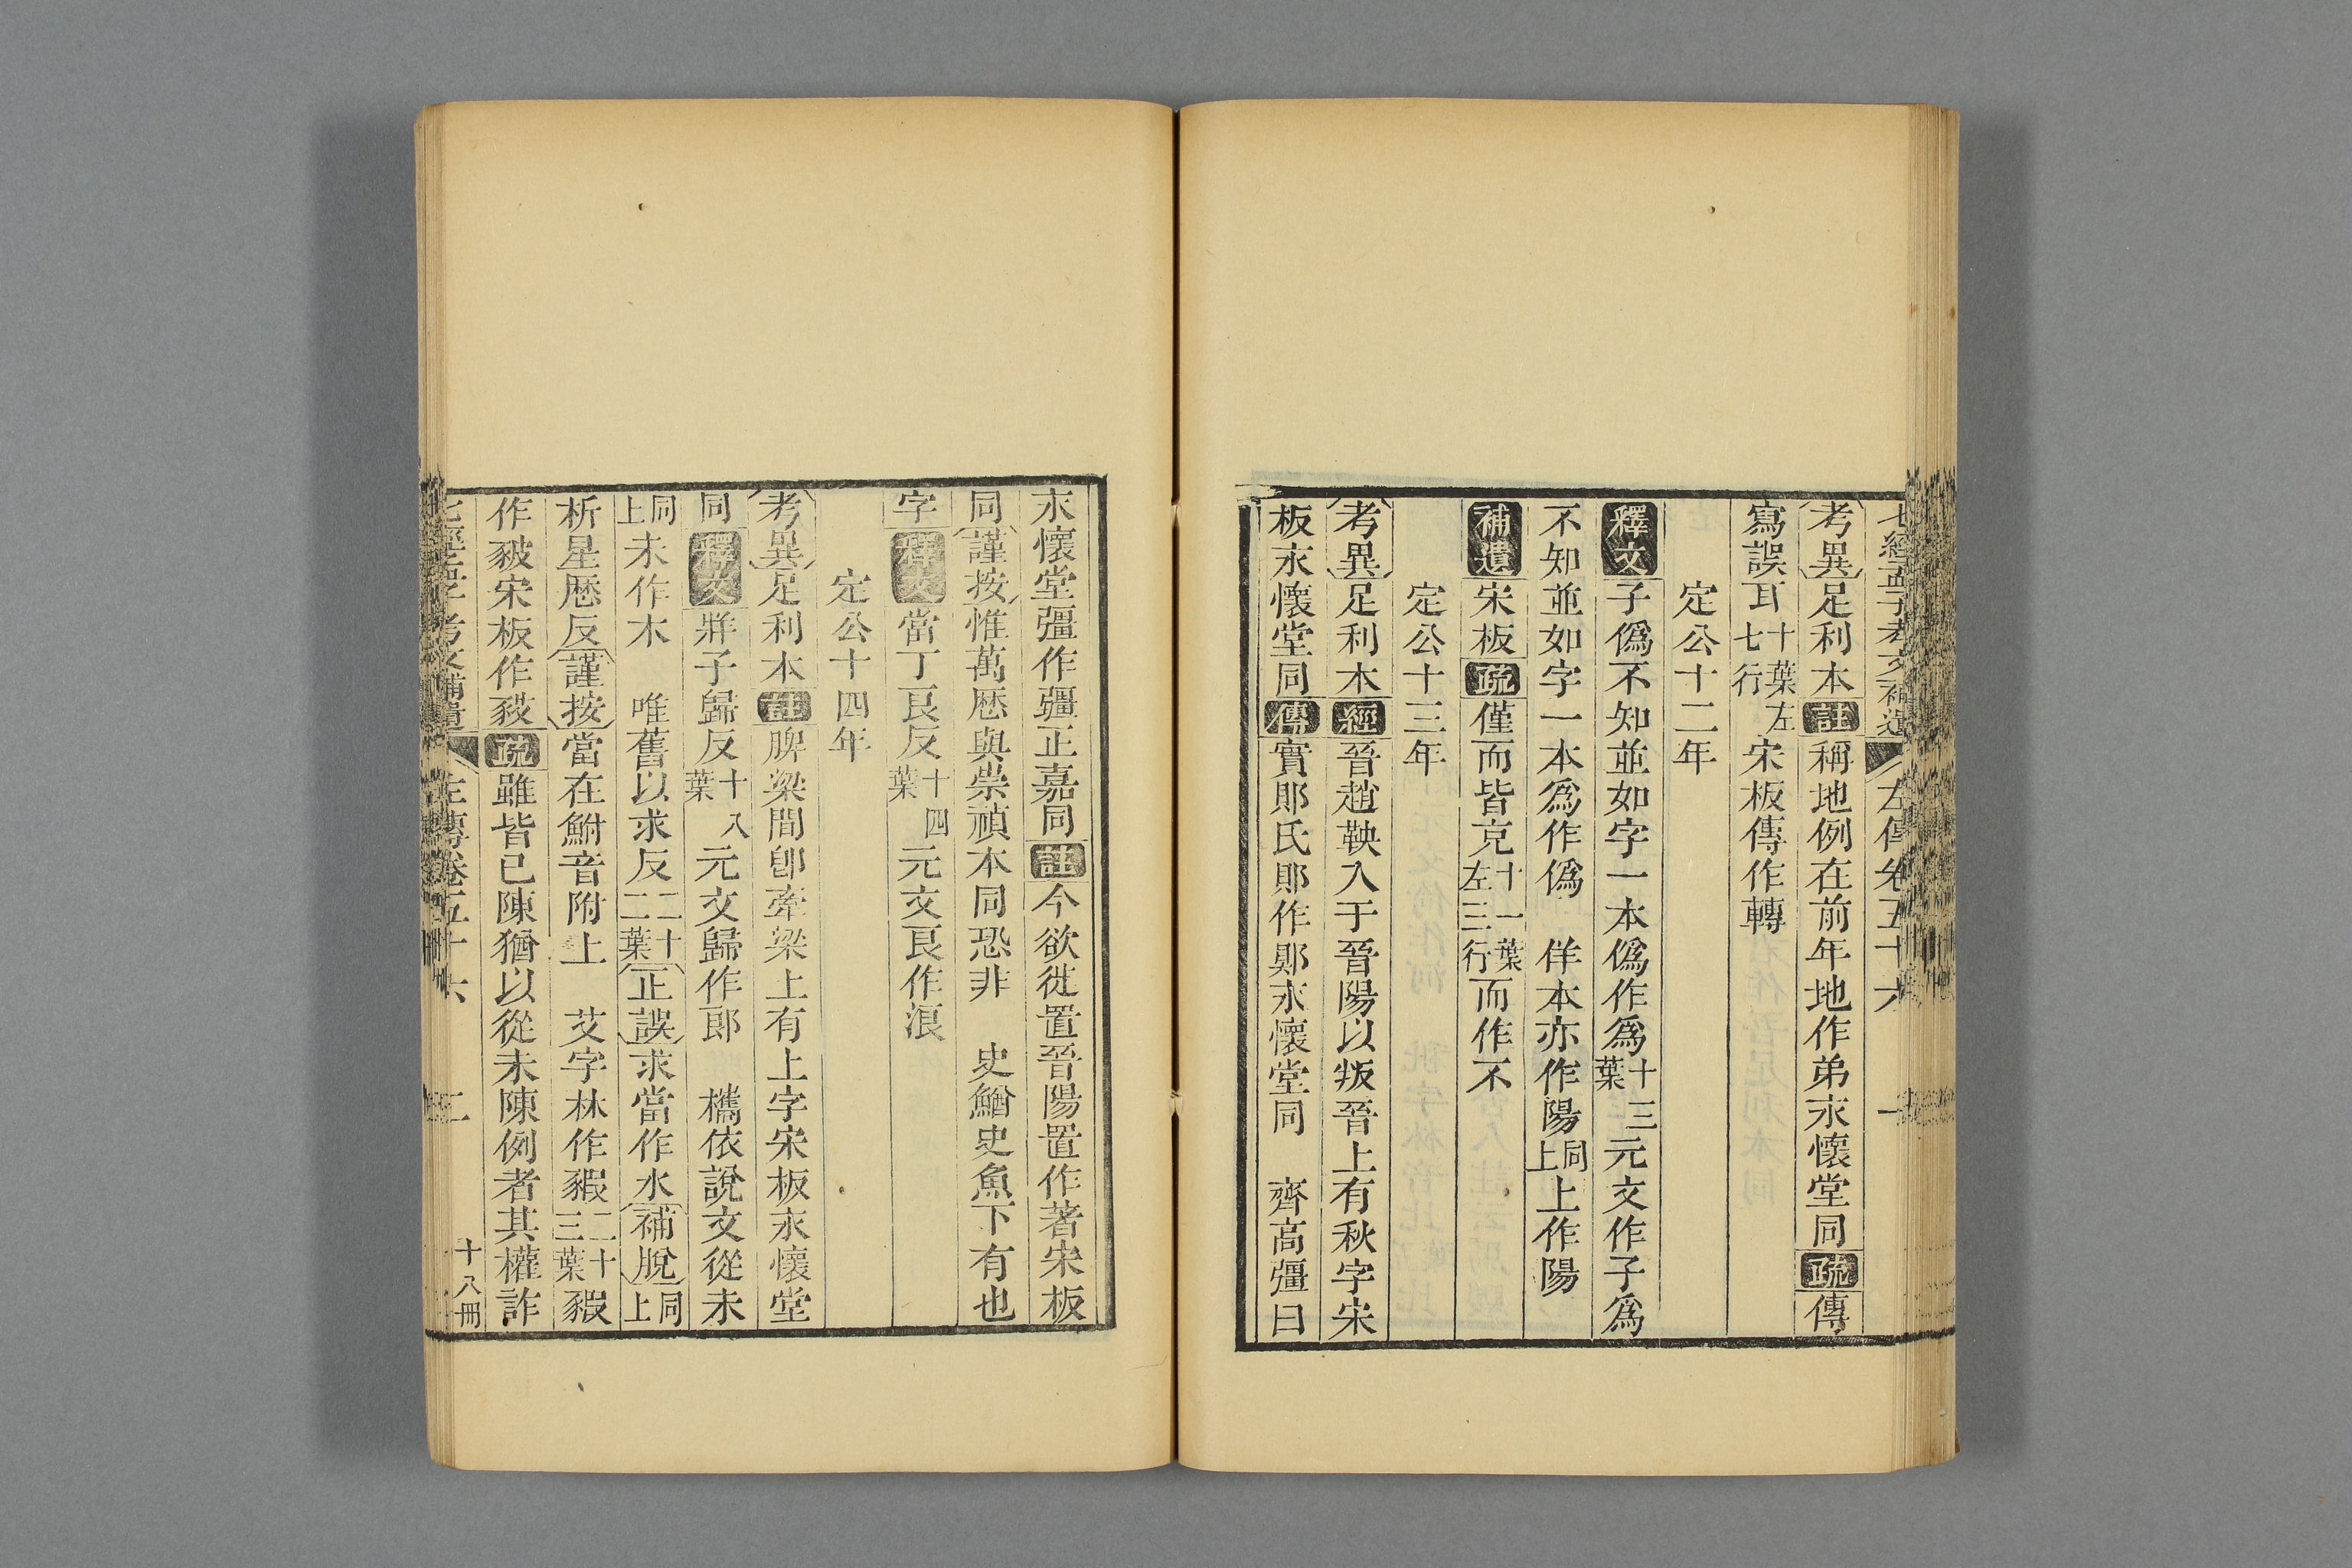 七經孟子考文補遺 左傳卷五十六 一
考異足利本註稱地例在前年地作弟永懷堂同疏傳
寫誤耳十七葉左行宋板傳作轉
定公十二年
釋文子僞不知並如字一本僞作爲十三葉元文作子爲
不知並如字一本爲作僞 佯本亦作陽同上上作陽
補遺宋板疏僅而皆克十一葉左三行而作不
定公十三年
考異足利本經晉趙鞅入于晉陽以叛晉上有秋字宋
板永懷堂同傳實郥氏郥作鄍永懷堂同 齊高彊曰
永懷堂彊作疆正嘉同註今欲徙置晉陽置作著宋板
同謹按惟萬曆與崇禎本同恐非 史鰌史魚下有也
字釋文當丁艮反十四葉元文艮作浪
定公十四年
考異足利本註脾梁間卽牽梁上有上字宋板永懷堂
同釋文牂子歸反十八葉元文歸作郎 檇依說文從未
同上未作木 唯舊以求反二十二葉正誤求當作水補脫同上
析星歷反謹按當在鮒音附上 艾字林作豭二十三葉豭
作豛宋板作豥疏雖皆已陳猶以從未陳例者其權詐
七經孟子考文補遺 左傳卷五十六 二 十八冊